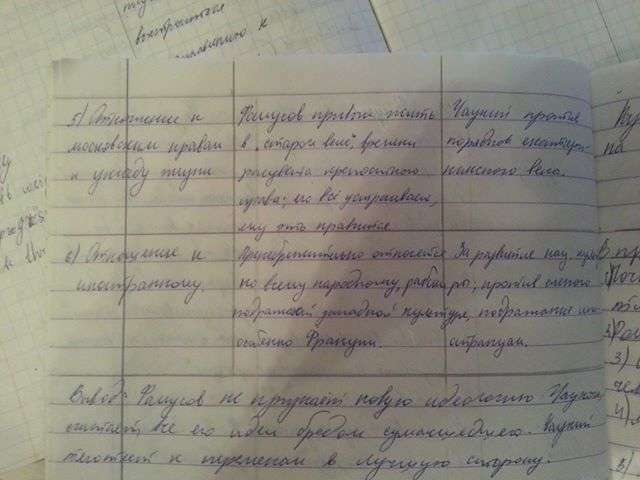 выстроиные
5) Отношение к московским нравам к укладу жизни
Фамусов привык жить
в старом веке, времени
расцвета крепостного
права: его всё устраивает,
ему это нравится.
Чацкий против
порядков екатерин-
нинского века.
6) Отношение к
иностранному.
Пренебрежительно относится
ко всему народному, рабски
подражает западной культуре,
особенно Франции.
За развитие нац. культу
ры, против слепого
подражания ино-
странцам.
Вывод: Фамусов не признаёт новую идеологию Чацкого
считает все его идеи бредом сумасшедшего. Чацкий
тяготеет к переменам в лучшую сторону.